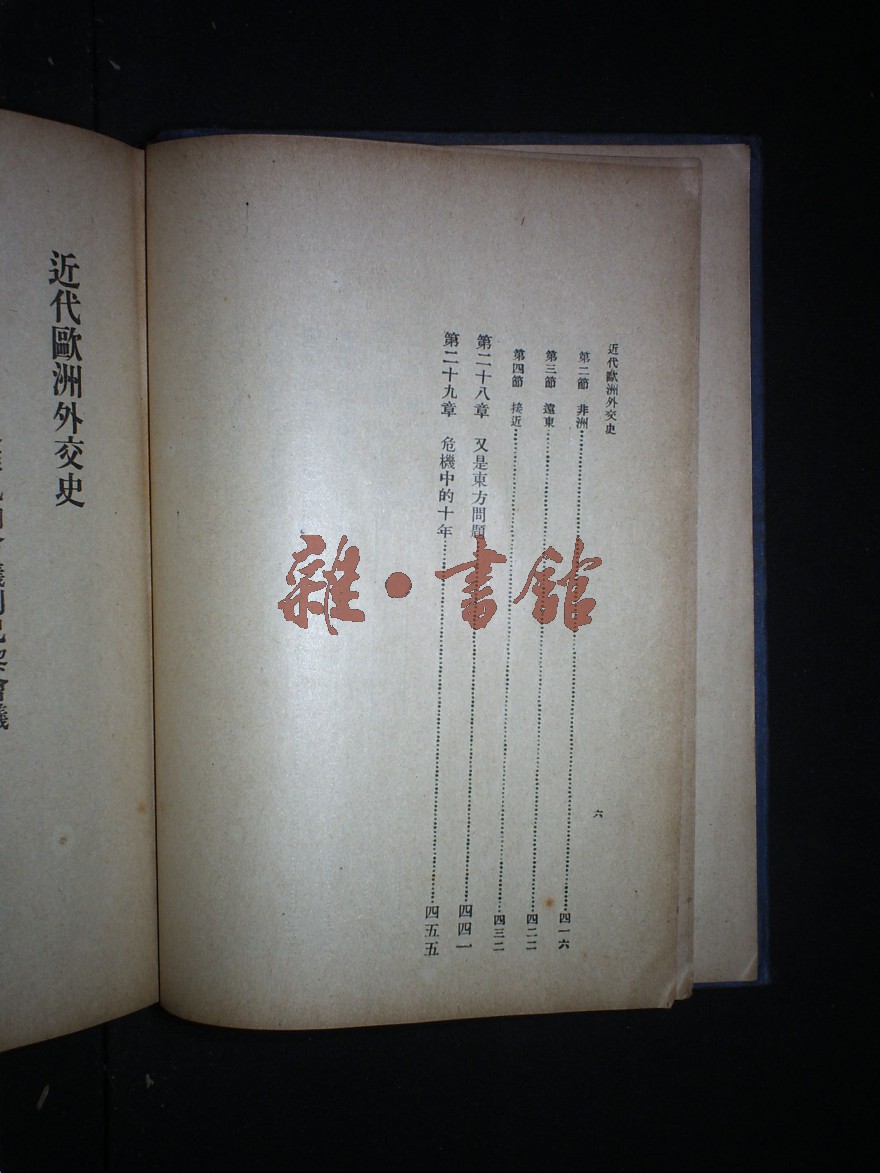 近代歐洲外交史
六
第二節　非洲……四一六
第三節　遠東……四二二
第四節　接近……四三二
第二十八章　又是東方問題……四四一
第二十九章　危機中的十年……四五五
雜·書館
近代歐洲外交史
會議